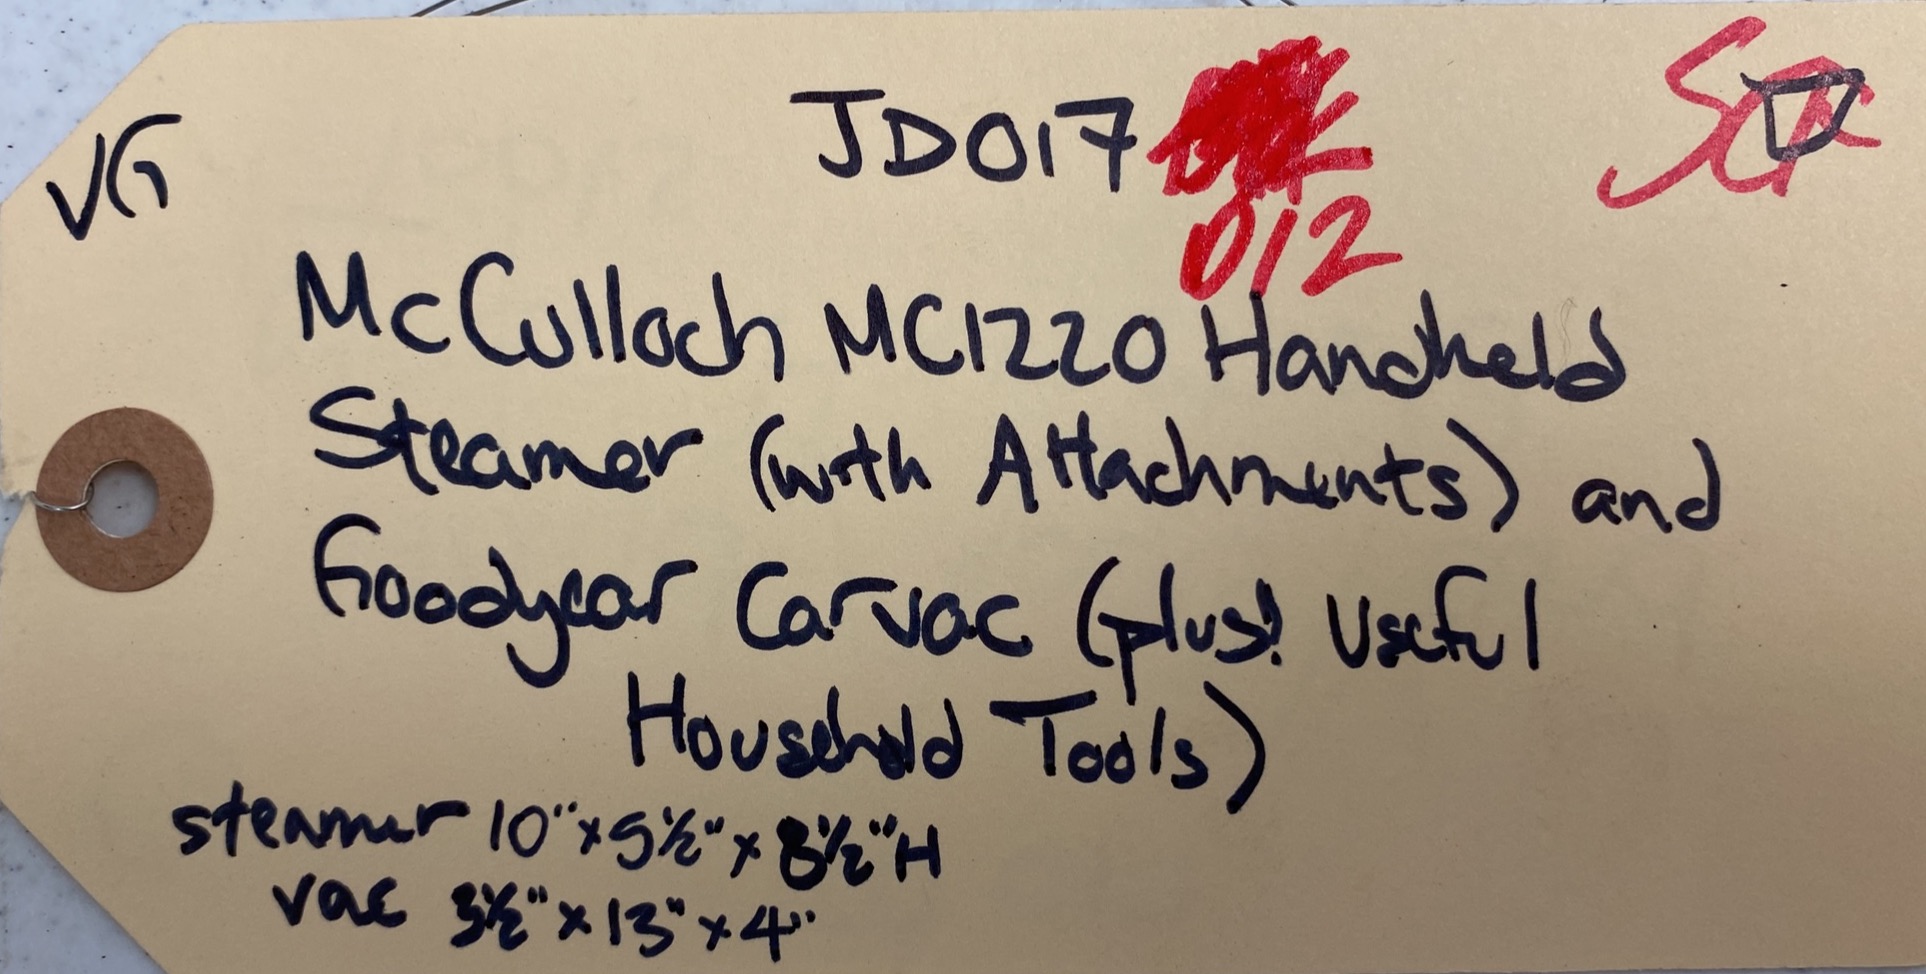 VG
JD017
012
McCulloch MC1220 Handheld
Steamer (with Attachments) and
Goodyear Carvac (plus! Useful
Household Tools)
steamer 10" x 5½" x 8½" H
vac 3½" x 13" x 4"